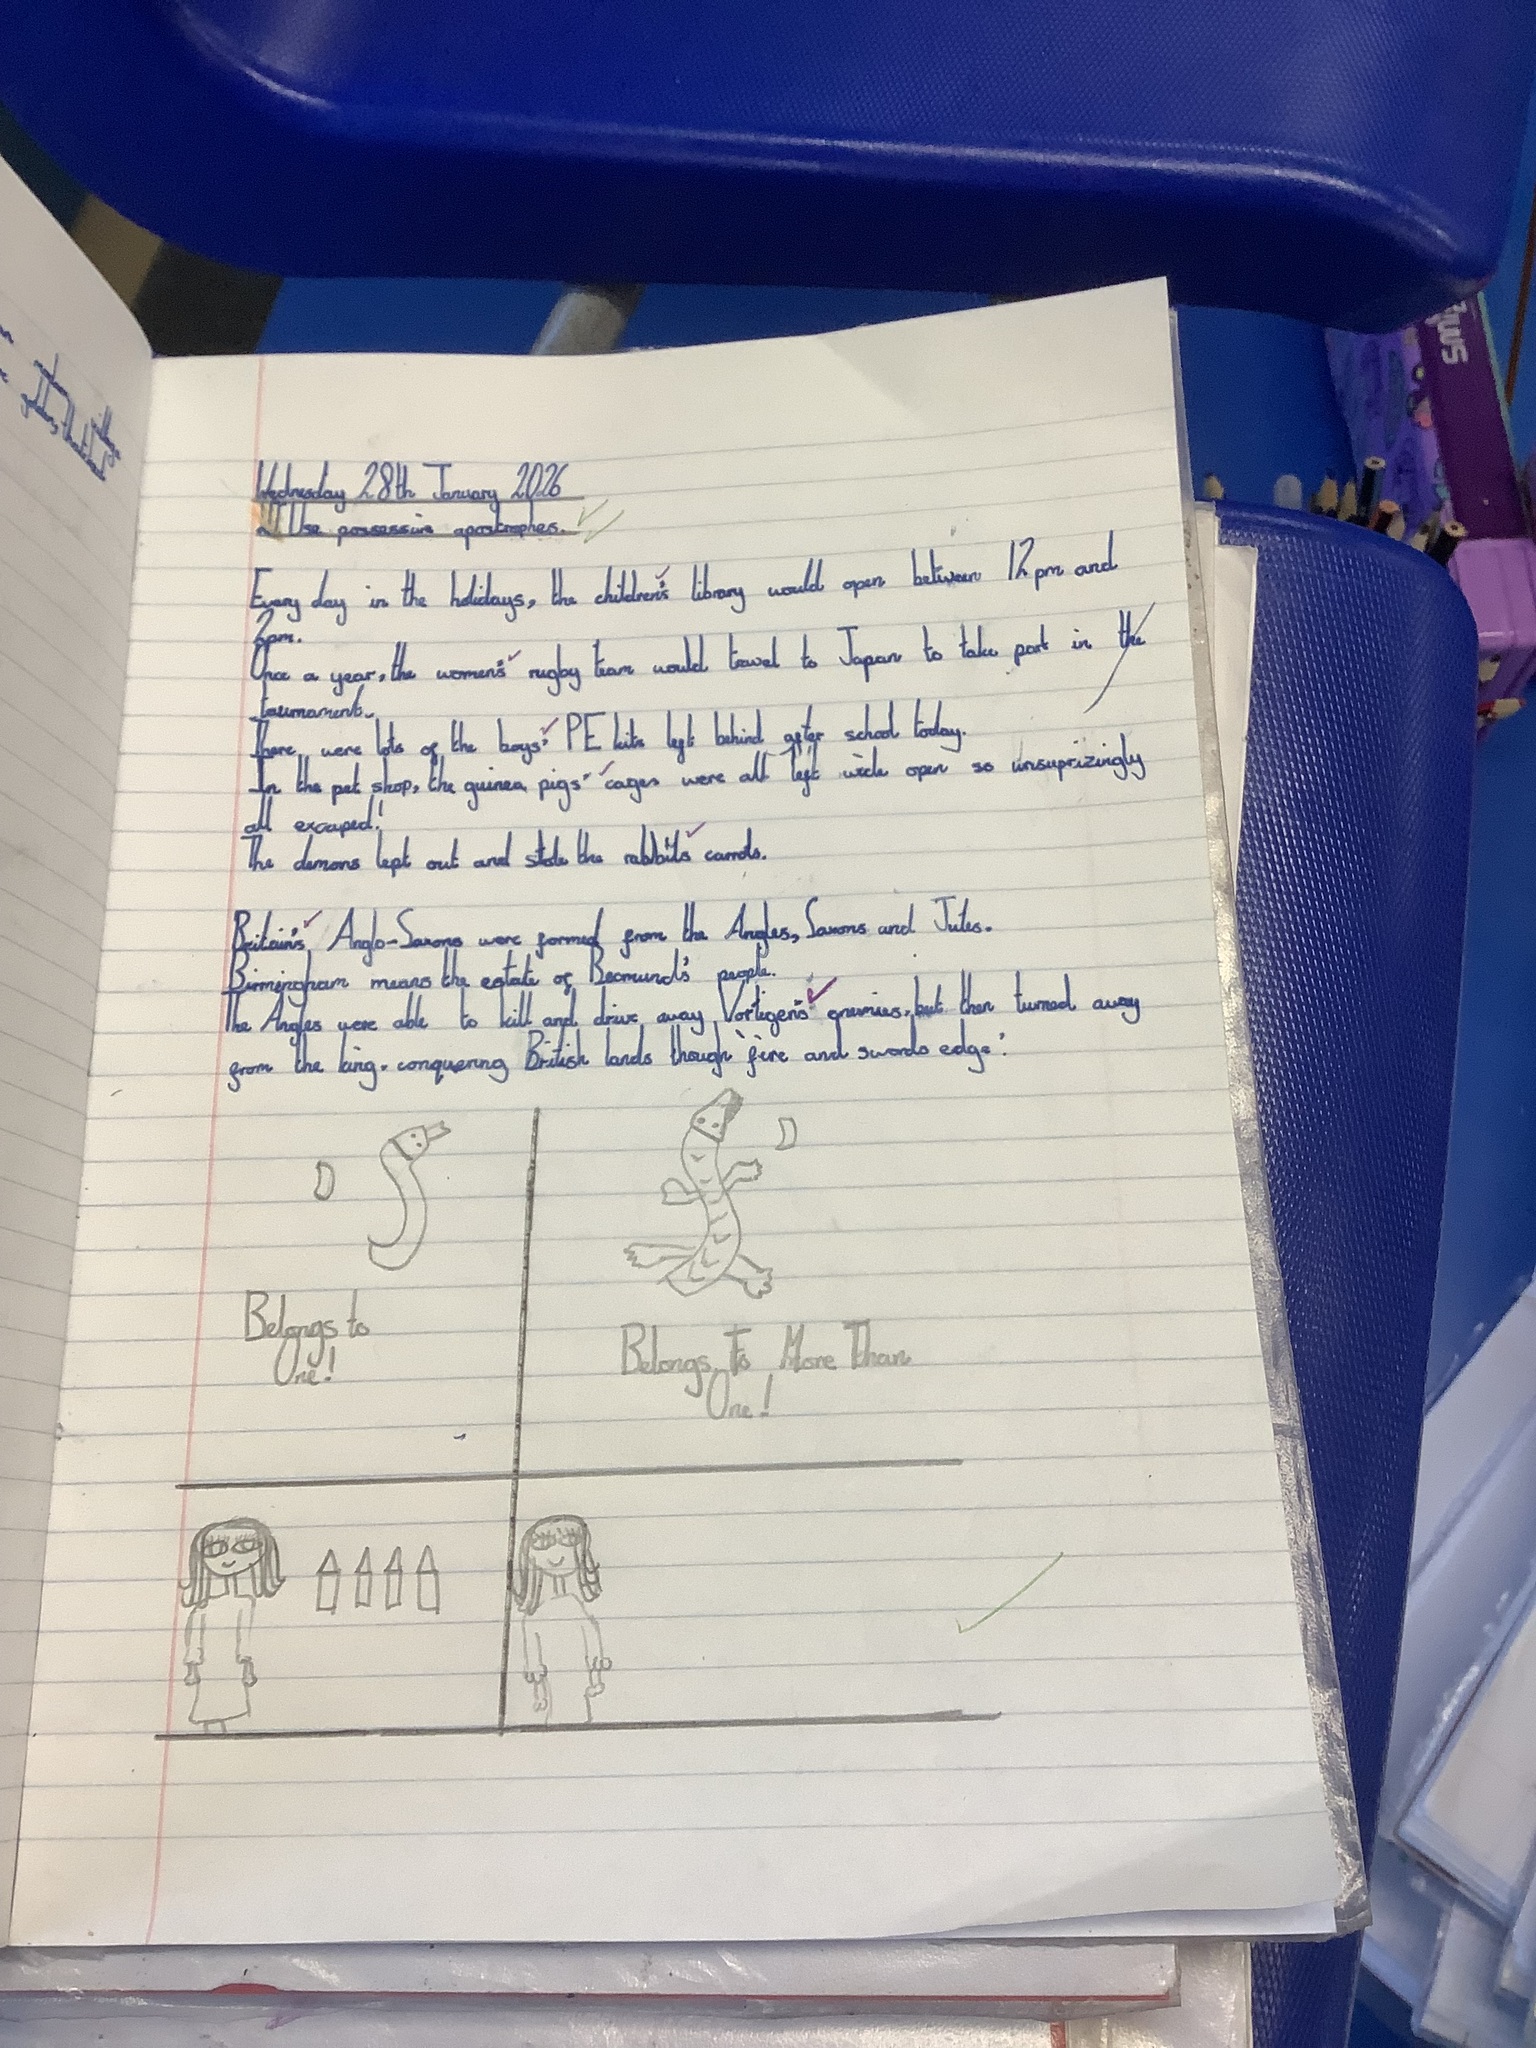 Wednesday 28th January 2026
Use possessive apostrophes.
Every day in the holidays, the children's library would open between 12pm and
2pm.
Once a year, the women's rugby team would travel to Japan to take part in the
tournament.
There were lots of the boys' PE kits left behind after school today.
In the pet shop, the guinea pigs' cages were all left wide open so unsuprizingly
all excaped!
The demons lept out and stole the rabbits carrots.
Britain's Anglo-Saxons were formed from the Angles, Saxons and Jutes.
Birmingham means the estate of Beormund's people.
The Angles were able to kill and drive away Vortigern's enemies, but then turned away
from the king. conquering British lands though 'fire and swords edge'.
Belongs to
One!
Belongs To More Than
One!
village
Smig